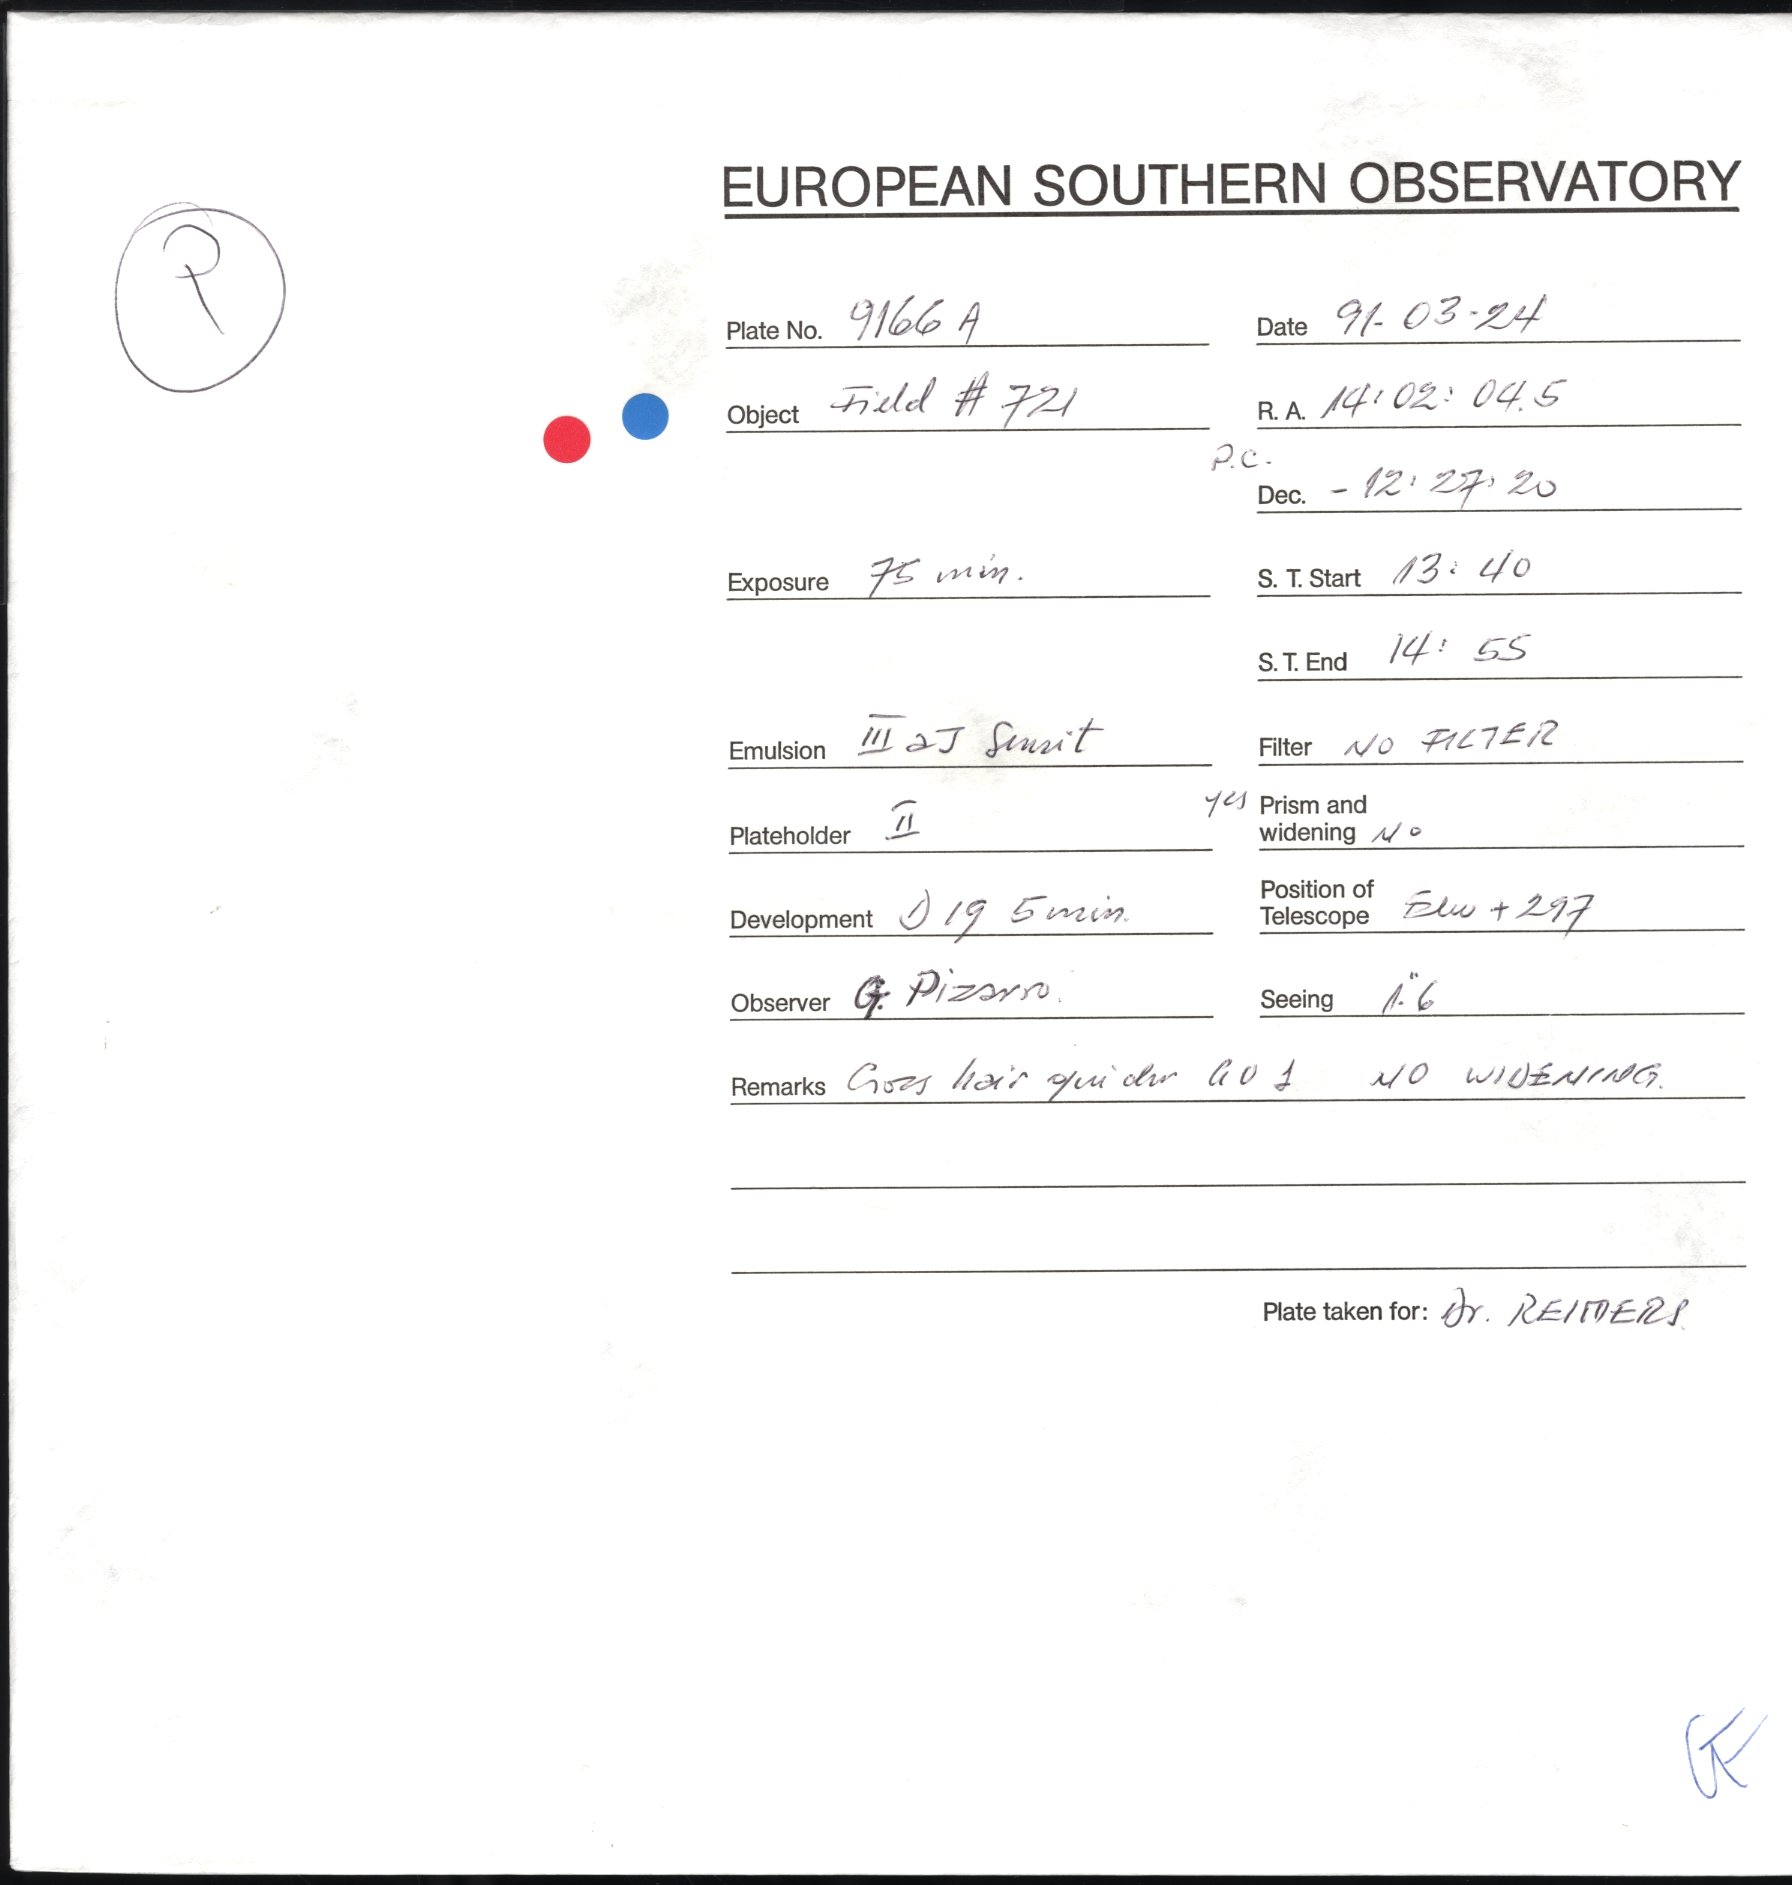 EUROPEAN SOUTHERN OBSERVATORY
R
Plate No. 9166 A
Date 91-03-24
Object Field # 721
R. A. 14:02:04.5
P.C.
Dec. -12:27:20
Exposure 75 min.
S. T. Start 13:40
S. T. End 14:55
Emulsion III aJ Sensit
Filter NO FILTER
Plateholder II
yes Prism and
widening No
Development D 19 5 min.
Position of
Telescope Elw + 297
Observer G. Pizarro.
Seeing 1."6
Remarks Cross hair guider NO WIDENING.
Plate taken for: Dr. REIMERS.